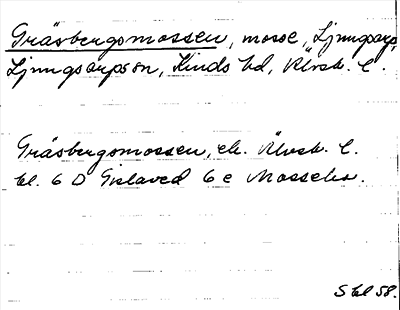 Gräsbergsmossen, mosse, Ljungsarps
Ljungsarps sn, Kinds hd, Älvsb. l.
Gräsbergsmossen, ek. Älvsb. l.
bl. 6 D Gislaved 6 e Mossebo.
S bl 58.